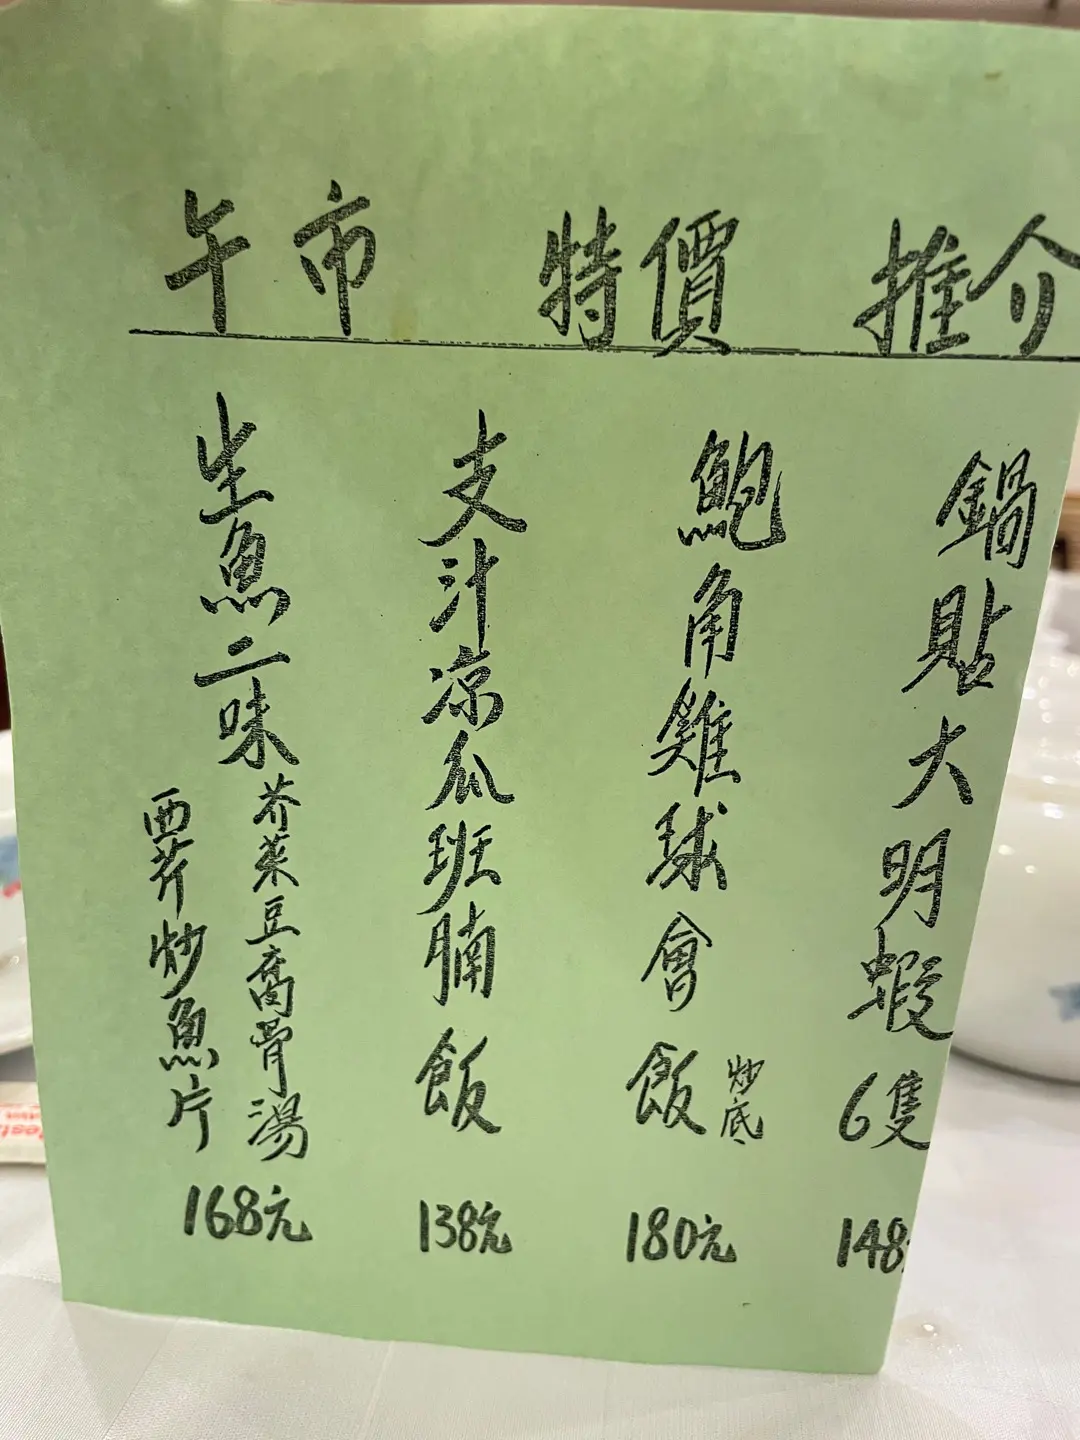 午市 特價 推介
鍋貼大明蝦6隻
148
鮑角雞球會飯
炒底
180元
支汁凉瓜班腩飯
138元
生魚二味
芥菜豆腐骨湯
西芹炒魚片
168元